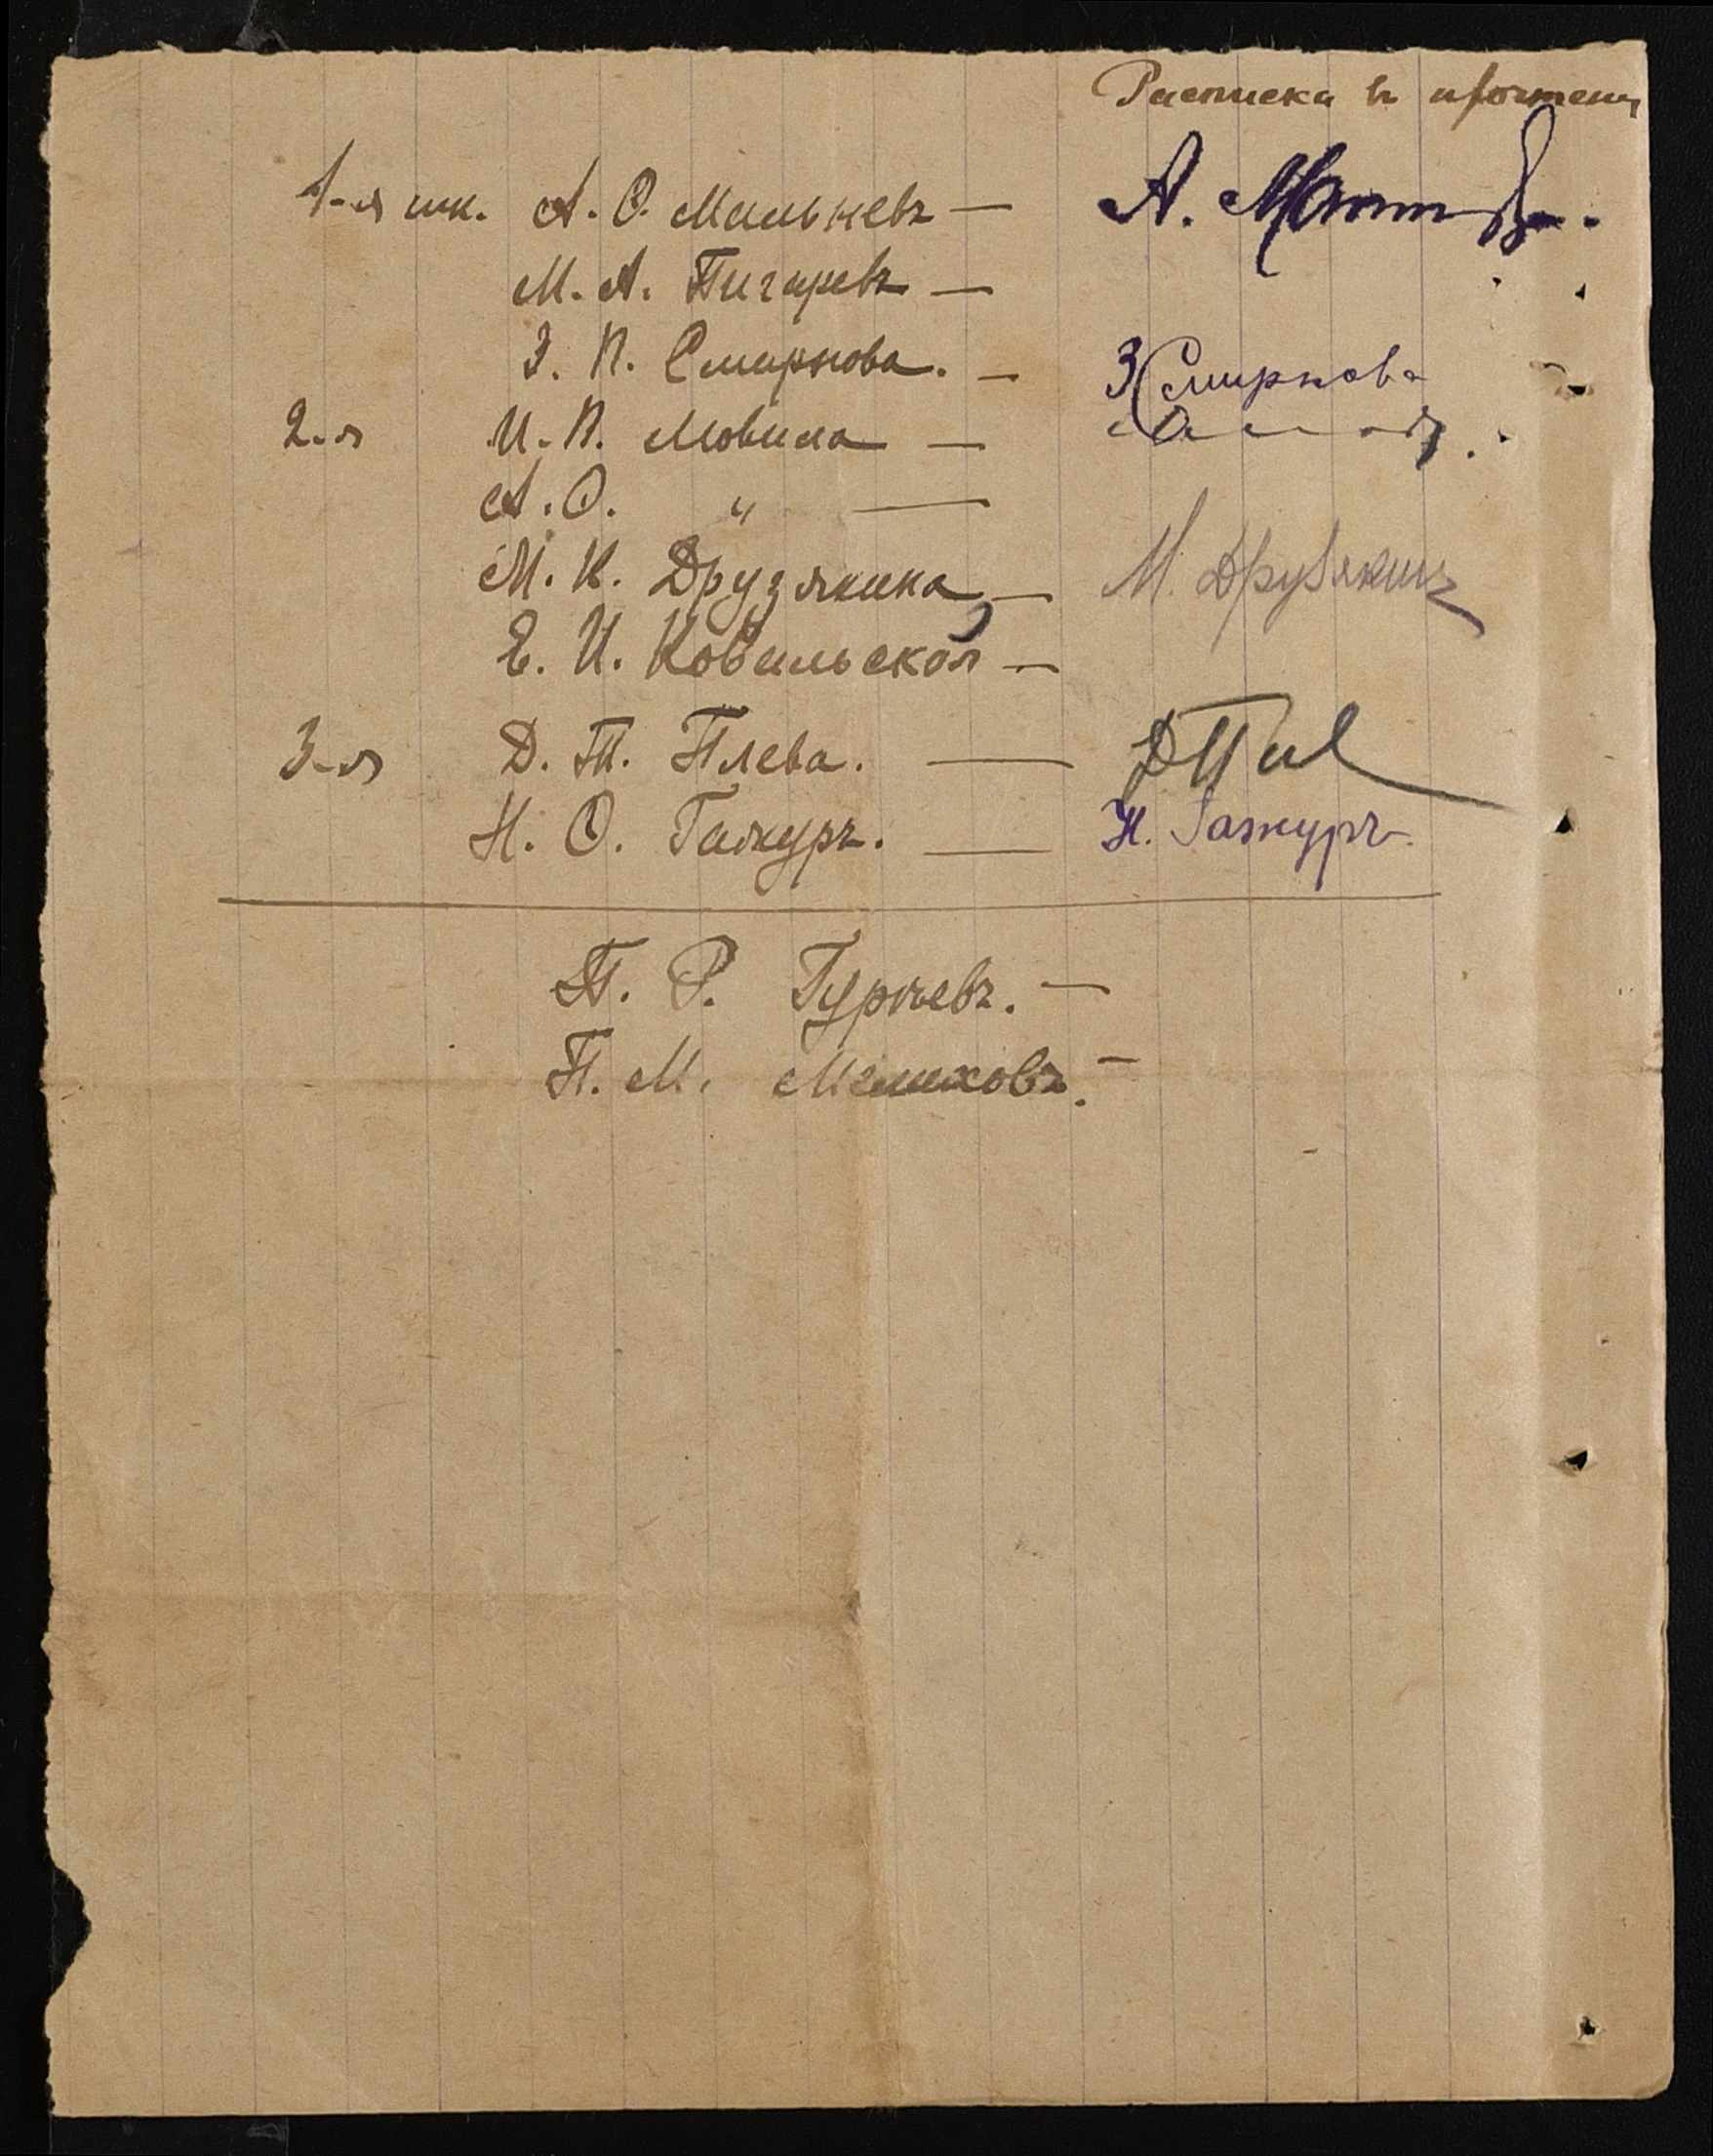 Расписка в прочтени
1-я шк. А. О. Мальневъ — А.
М. А. Пигаревъ —
З. П. Смирнова. — З Смирнова
2-я И. П. Мовила —
А. О. " —
М. К. Друзякина — М. Друзякина
Е. И. Ковальская —
3-я Д. Т. Плева. —
Н. О. Гажуръ. — Н. Гажуръ.
П. Р. Гурьевъ. —
П. М. Мелиховъ. —